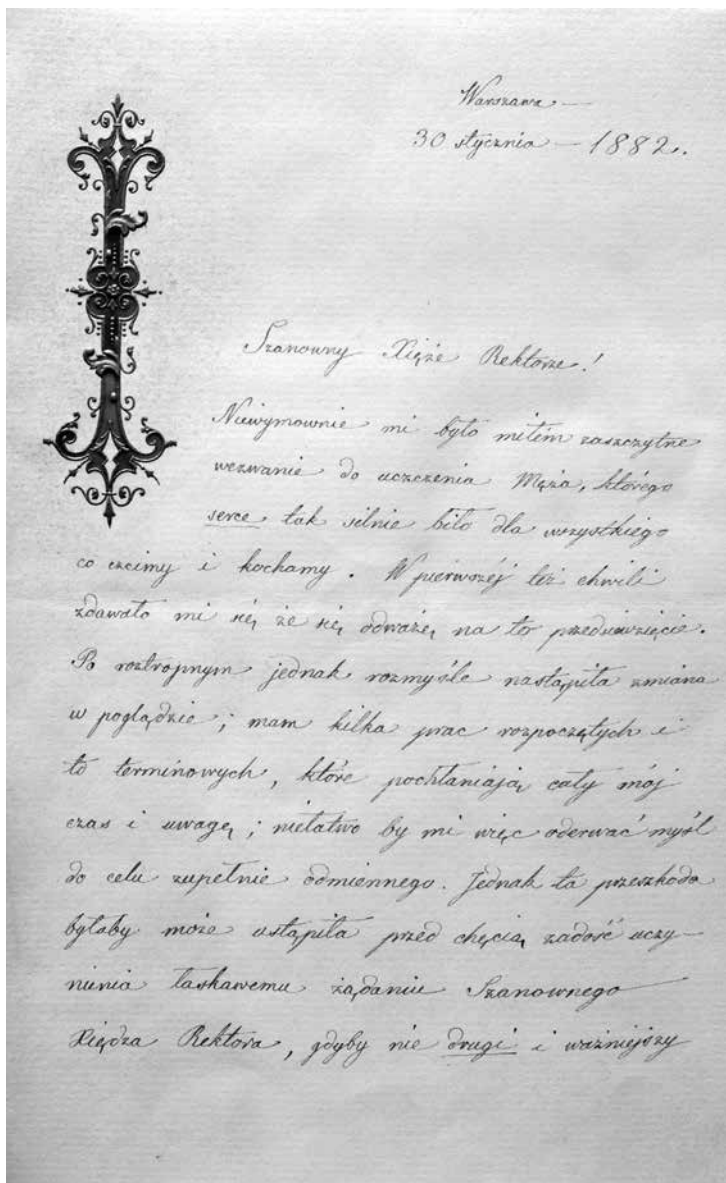 Warszawa —
30 stycznia — 1882.
Szanowny Xięże Rektorze!
Niewymownie mi było miłem zaszczytne
wezwanie do uczczenia Męża, którego
serce tak silnie biło dla wszystkiego
co czcimy i kochamy. W pierwszéj też chwili
zdawało mi się, że się odważę na to przedsiewzięcie.
Po roztropnym jednak rozmyśle nastąpiła zmiana
w poglądzie; mam kilka prac rozpoczętych i
to terminowych, które pochłaniają cały mój
czas i uwagę; niełatwo by mi więc oderwać myśl
do celu zupełnie odmiennego. Jednak ta przeszkoda
byłaby może ustąpiła przed chęcią zadość uczy-
nienia łaskawemu żądaniu Szanownego
Xiędza Rektora, gdyby nie drugi i ważniejszy